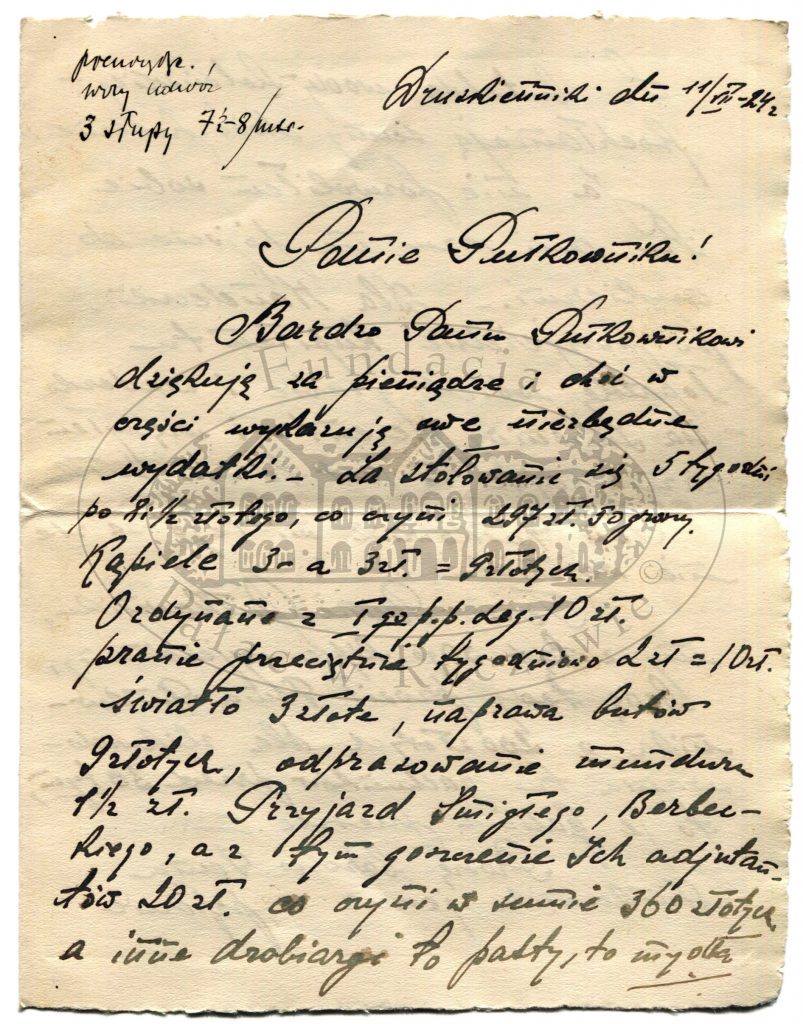 3 słupy 7½-8/mtr.
Druskieniki dn 11/VII-24r
Panie Pułkowniku!
Bardzo Panu Pułkownikowi
dziękuję za pieniądze i choć w
części wykazuję swe niezbędne
wydatki. – Za stołowanie się 5 tygodni
po 8 i ½ złotego, co czyni 297 zł. 50 groszy.
Kąpiele 3 – a 3 zł. = 9 złotych.
Ordynans z I go p.p. Leg. 10 zł.
pranie przeciętnie tygodniowo 2 zł = 10 zł.
Światło 3 złote, naprawa butów
9 złotych, odprasowanie munduru
1½ zł. Przyjazd Śmigłego, Berbec-
kiego, a z tym goszczenie Ich adjutan-
tów 20 zł. co czyni w sumie 360 złotych
a inne drobiazgi to pasty, to mydła
Fundacja
Pałac w Rycerowie ©